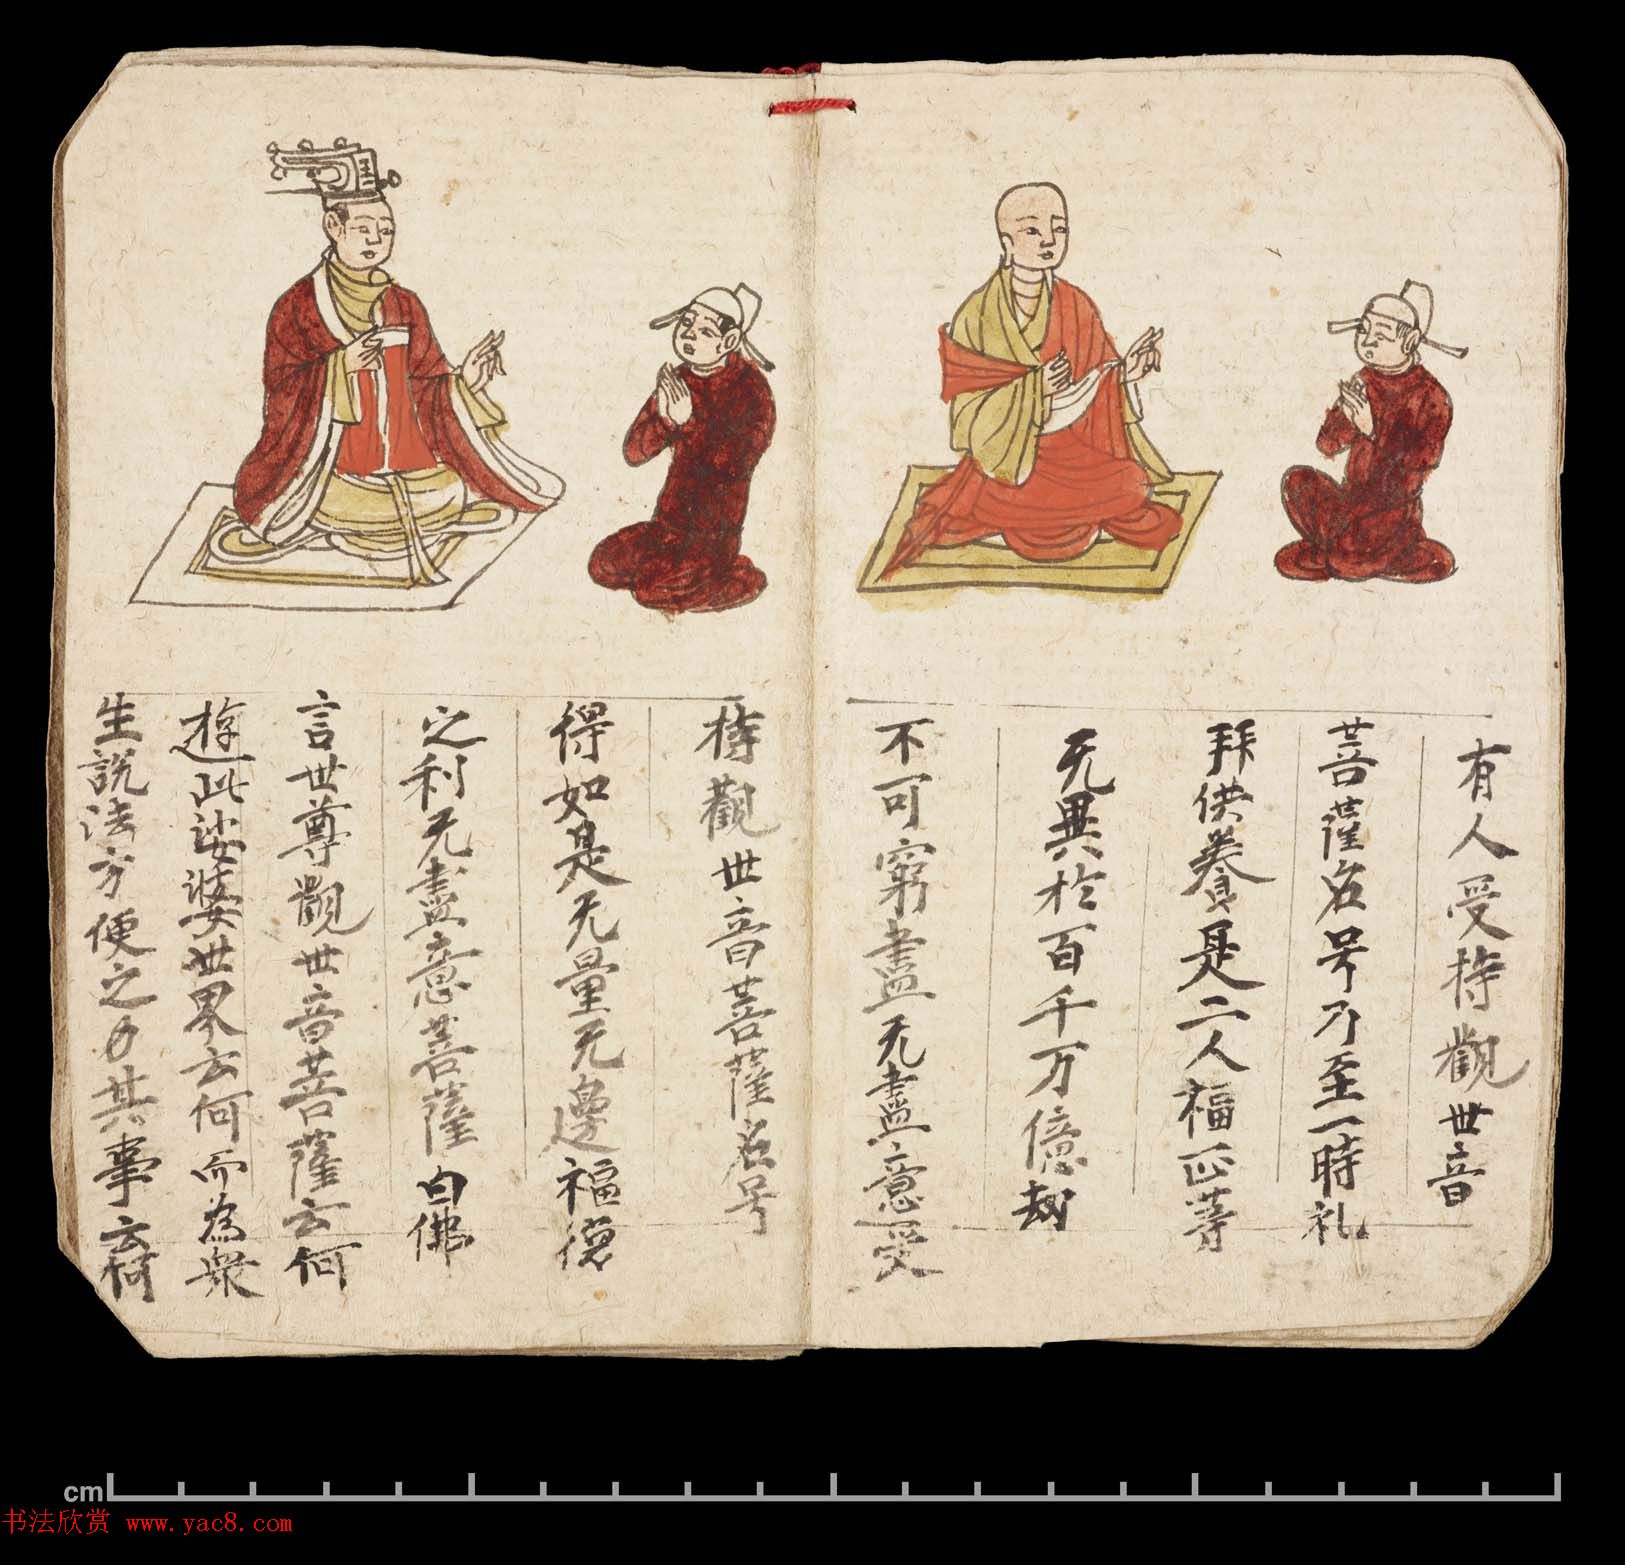 有人受持觀世音
菩薩名号乃至一時礼
拜供養是二人福正等
无異於百千万億劫
不可窮盡无盡意受
持觀世音菩薩名号
得如是无量无邊福德
之利无盡意菩薩白佛
言世尊觀世音菩薩云何
遊此娑婆世界云何而為衆
生説法方便之力其事云何
cm
书法欣赏 www.yac8.com